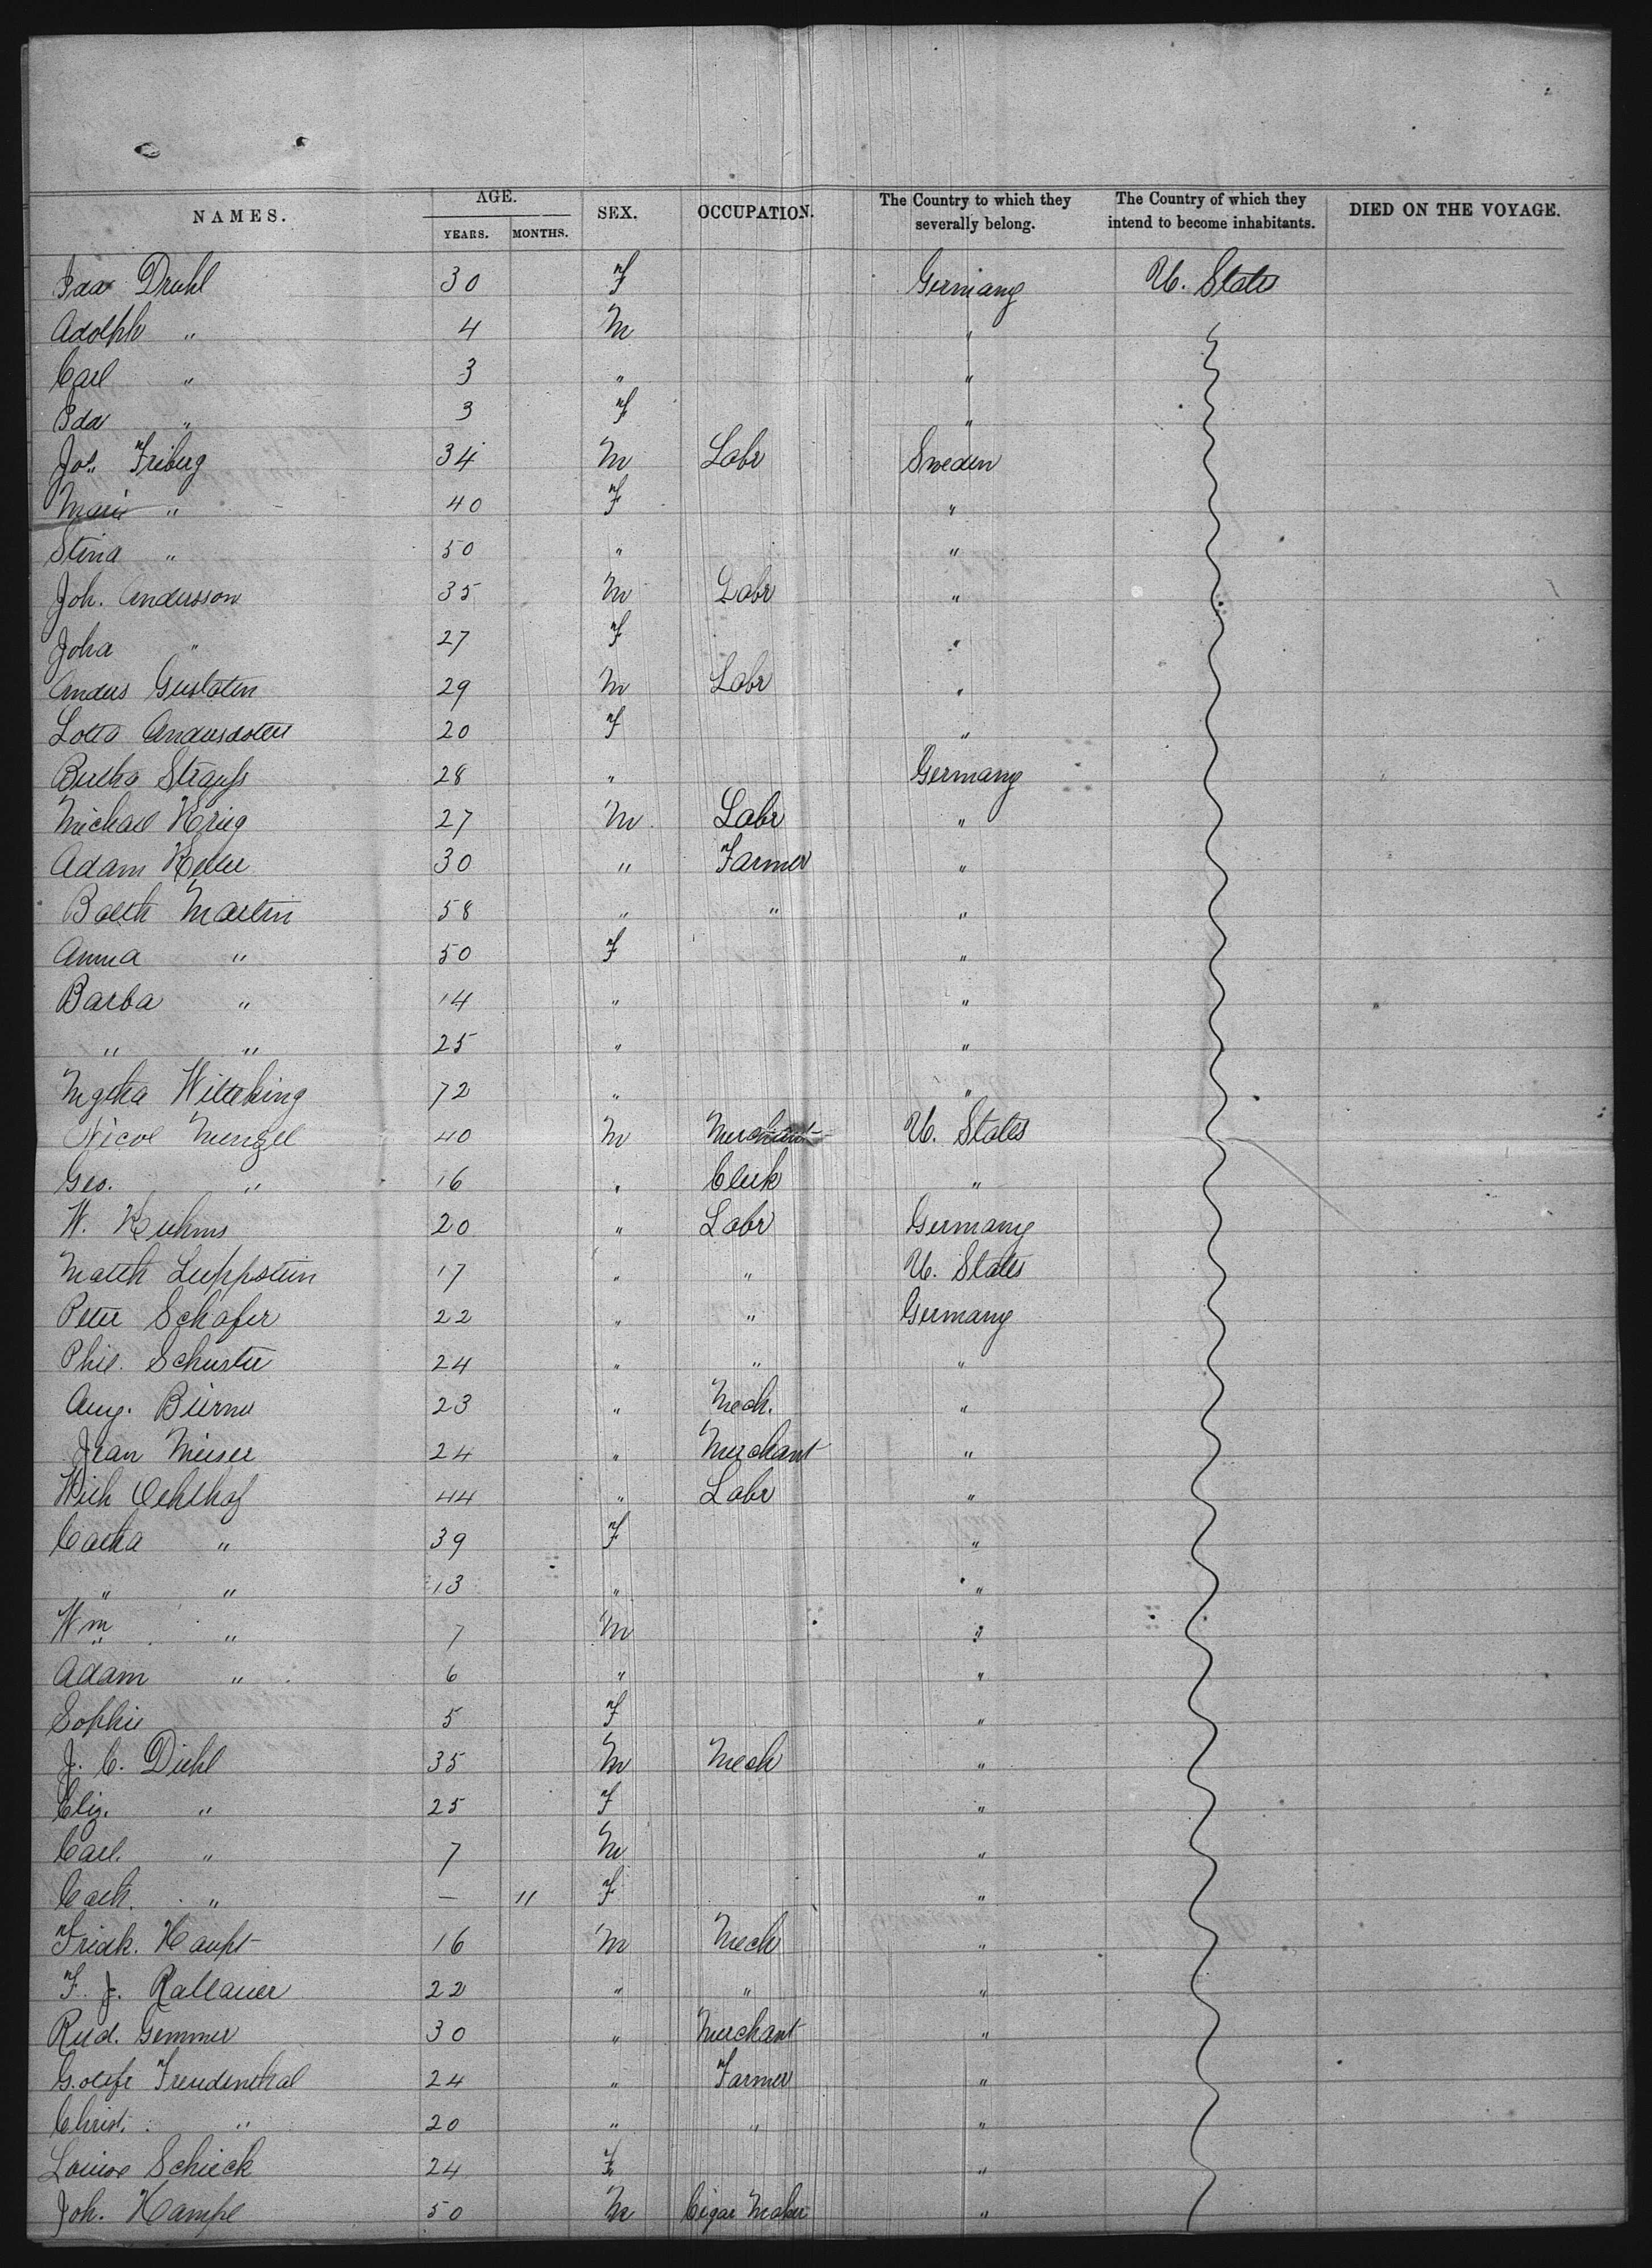 NAMES. AGE. SEX. OCCUPATION. The Country to which they severally belong. The Country of which they intend to become inhabitants. DIED ON THE VOYAGE.
YEARS. MONTHS.
Ida Druhl 30 F Germany U. States
Adolph " 4 M "
Carl " 3 " "
Ida " 3 F "
Jos. Friberg 34 M Labr Sweden
Marie " 40 F "
Stina " 50 " "
Joh. Andersson 35 M Labr "
Joha " 27 F "
Anders 29 M Labr "
Lotta Andersdotter 20 F "
Bertha Strauss 28 " Germany
Michael Krieg 27 M Labr "
Adam Keller 30 " Farmer "
Balth Martin 58 " " "
Anna " 50 F "
Barba " 14 " "
" " 25 " "
Mgtha 72 " "
Nicol Menzel 40 M Merchant U. States
Geo. " 16 " Clerk "
W. Kuhms 20 " Labr Germany
Matth Luppstein 17 " " U. States
Peter Schafer 22 " " Germany
Phil. Schuster 24 " " "
Aug. 23 " Mech. "
Jean Meiser 24 " Merchant "
44 " Labr "
Catha " 39 F "
" " 13 " "
Wm " 7 M "
Adam " 6 " "
Sophie 5 F "
J. C. Diehl 35 M Mech "
Eliz. " 25 F "
Carl. " 7 M "
Cath. " — 11 F "
Friedk. Haupt 16 M Mech "
F. J. Rallauer 22 " " "
Rud. Gemmer 30 " Merchant "
Freudenthal 24 " Farmer "
Christ. " 20 " " "
Louise Schieck 24 F "
Joh. Hampe 50 M Cigar Maker "